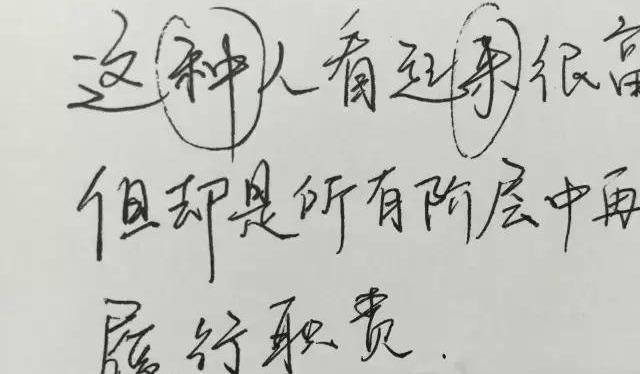 这种人看起来很富
但却是所有阶层中再
履行职责.